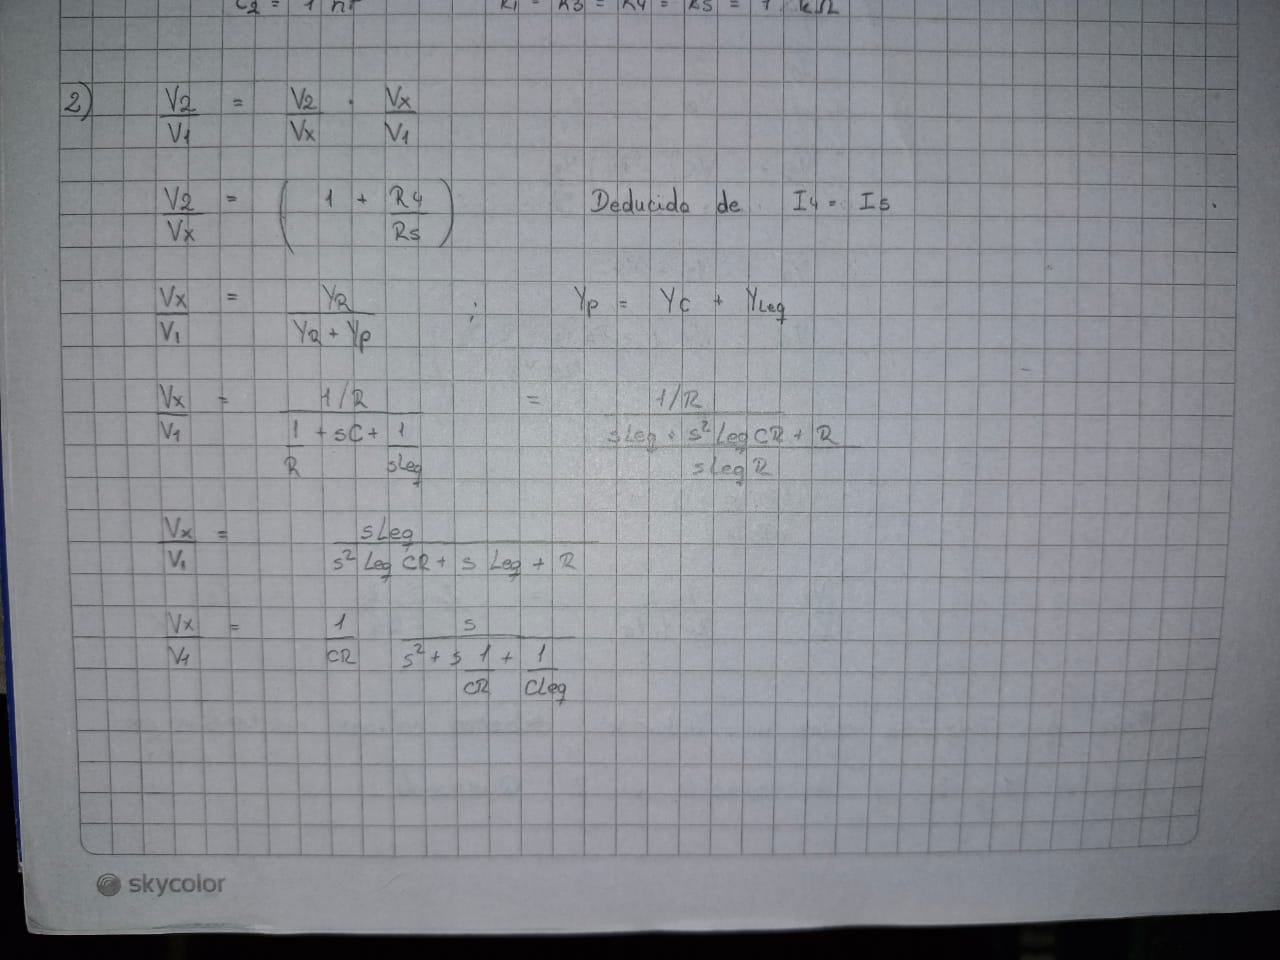 C2 = 1 nF R1 = R3 = R4 = R5 = 1 kΩ
2) V2/V1 = V2/Vx · Vx/V1
V2/Vx = (1 + R4/R5) Deducido de I4 = I5
Vx/V1 = YR/(YR + Yp) ; Yp = YC + YLeq
Vx/V1 = (1/R)/(1/R + sC + 1/sLeq) = (1/R)/((sLeq + s² Leq CR + R)/(sLeq R))
Vx/V1 = sLeq/(s² Leq CR + s Leq + R)
Vx/V1 = 1/CR s/(s² + s 1/CR + 1/CLeq)
skycolor